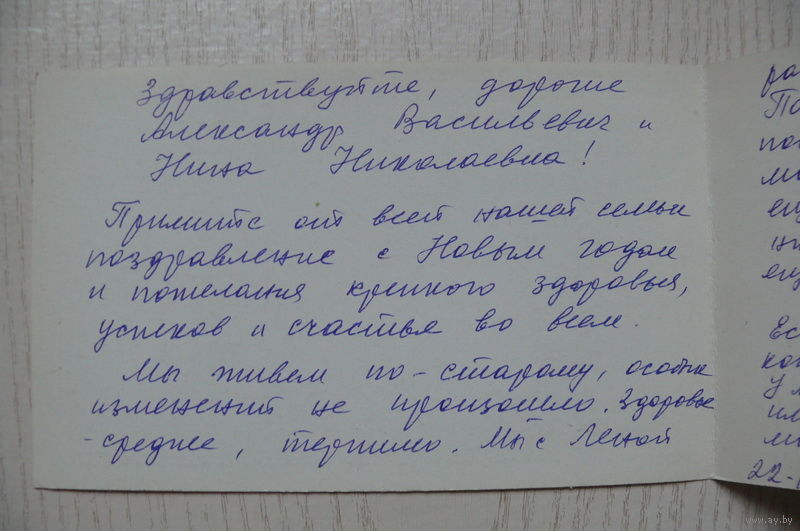 Здравствуйте, дорогие
Александр Васильевич и
Нина Николаевна!
Примите от всей нашей семьи
поздравление с Новым годом
и пожелания крепкого здоровья,
успехов и счастья во всем.
Мы живем по-старому, особых
изменений не произошло. Здоровье
-среднее, терпимо. Мы с Леной
ра
По
по
мо
ещ
ни
ещ
Ес
ко
У м
им
ми
22-
www.ay.by